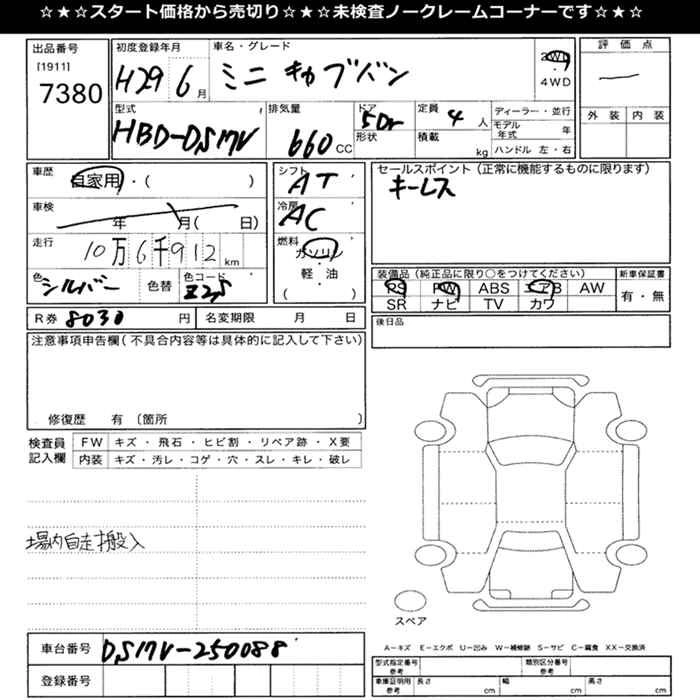 ☆★☆スタート価格から売切り☆★☆未検査ノークレームコーナーです☆★☆
出品番号
[1911]
7380
初度登録年月
H29 6月
車名・グレード
ミニキャブバン
2WD
4WD
評価点
外装 内装
型式
HBD-DS17V
排気量
660 CC
ドア
5Dr
形状
定員
4人
積載
kg
ディーラー・並行
モデル年式 年
ハンドル 左・右
車歴
自家用・( )
車検
年 月( 日)
走行
10万6千912km
色
シルバー
色替
色コード
Z2S
シフト
AT
冷房
AC
燃料
ガソリン
・
軽・油
( )
セールスポイント(正常に機能するものに限ります)
キーレス
装備品(純正品に限り○をつけてください)
PS PW ABS エアB AW
SR ナビ TV カワ
新車保証書
有・無
R券 8030 円
名変期限 月 日
後日品
注意事項申告欄(不具合内容等は具体的に記入して下さい)
修復歴 有 〔箇所 〕
検査員記入欄
FW キズ・飛石・ヒビ割・リペア跡・X要
内装 キズ・汚レ・コゲ・穴・スレ・キレ・破レ
場内自走搬入
スペア
A－キズ E－エクボ U－凹み W－補修跡 S－サビ C－腐食 XX－交換済
車台番号 DS17V-250088
登録番号
型式指定番号
参考
類別区分番号
参考
車庫証明用
参考
長さ cm 幅 cm 高さ cm